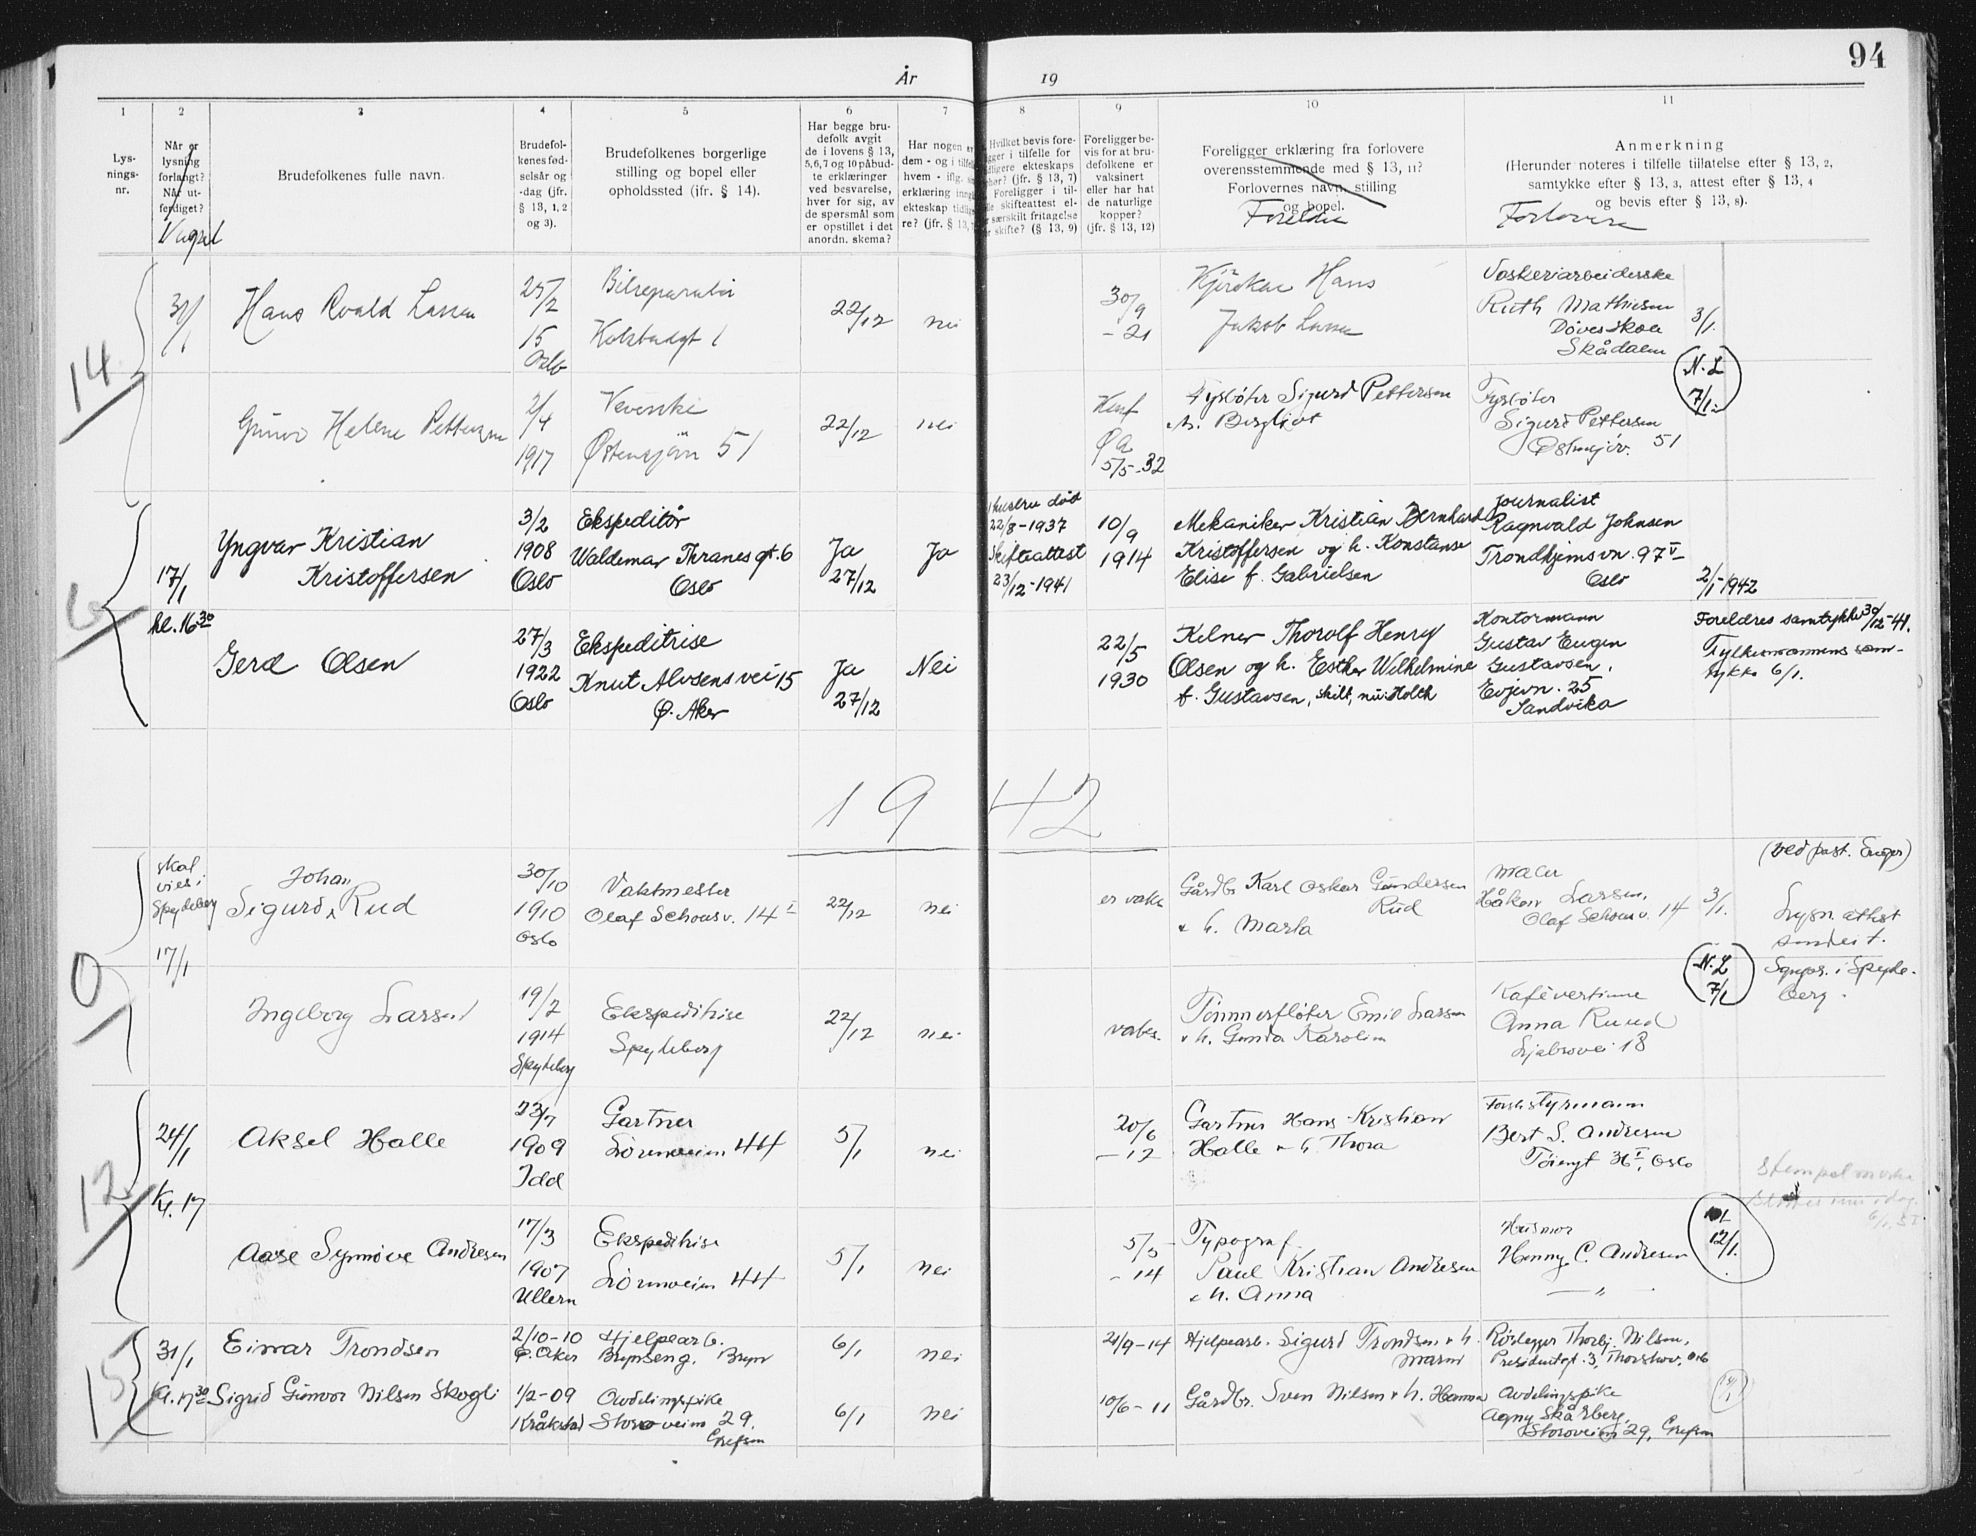 94
År 19
1 2 3 4 5 6 7 8 9 10 11
Lys-
nings-
nr.
Når er
lysning
forlangt?
Når ut-
ferdiget?
Viegsel
Brudefolkenes fulle navn.
Brudefol-
kenes fød-
selsår og
-dag (jfr.
§ 13, 1, 2
og 3).
Brudefolkenes borgerlige
stilling og bopel eller
opholdssted (ifr. § 14).
Har begge bru-
defolk avgit
de i lovens § 13,
5,6,7 og 10 påbud-
te erklæringer
ved besvarelse,
hver for sig, av
de spørsmål som
er opstillet i det
anordn. skema?
Har nogen er
dem - og i tilfel
hvem - iflg.
erklæring inng
ekteskap tidlig
re? (jfr. § 13,
Hvilket bevis fore-
gger i tilfelle for
dligere ekteskaps
phør? (jfr. § 13, 7)
Foreligger i til-
le skifteattest el-
særskilt fritagelse
r skifte? (§ 13, 9)
Foreligger be-
vis for at bru-
defolkene er
vaksinert
eller har hat
de naturlige
kopper?
(jfr. § 13, 12)
Foreligger erklæring fra forlovere
overensstemmende med § 13, 11?
Forlovernes navn, stilling
og bopel.
Foreldre
Anmerkning
(Herunder noteres i tilfelle tillatelse efter § 13, 2,
samtykke efter § 13, 3, attest efter § 13, 4
og bevis efter § 13, 8).
Forlovere
14
Hans Roald Larsen
25/2
15
Oslo
Bilreparatør
22/12
nei
30/9
- 21
Kjørekar Hans
Jakob Larsen
Vaskeriarbeiderske
Ruth Mathiesen
Døveskolen
Skådalen
3/1.
N.L
7/1.
Gunvor Helene Pettersen
2/4
1917
Veverske
Østensjøvn 51
22/12
nei
Konf
Ø A
5/5-32
Fyrbøter Sigurd Pettersen
h. Bergljot
Fyrbøter
Sigurd Pettersen
Østensjøv. 51
6
17/1
kl. 16 30
Yngvar Kristian
Kristoffersen
3/2
1908
Oslo
Ekspeditør
Waldemar Thranes gt. 6
Oslo
Ja
27/12
Ja
Hustru død
22/8-1937
Skifteattest
23/12-1941
10/9
1914
Mekaniker Kristian Bernhard
Kristoffersen og h. Konstanse
Elise f. Gabrielsen
Journalist
Ragnvald Johnsen
Trondhjemsvn. 97 V
Oslo
2/1-1942
Gerd Olsen
27/3
1922
Oslo
Ekspeditrise
Knut Alvsens vei 15
Ø. Aker
Ja
27/12
Nei
22/5
1930
Kelner Thorolf Henry
Olsen og h. Esther Wilhelmine
f. Gustavsen, skilt, nu: Holth
Kontormann
Gustav Eugen
Gustavsen,
Evjevn. 25
Sandvika
Foreldres samtykke 30/12-41.
Fylkesmannens sam-
tykke 6/1.
1942
0
skal
vies i
Spydeberg
17/1
Johan
Sigurd Rud
30/10
1910
Oslo
Vaktmester
Olaf Schous v. 14 I
22/12
nei
er vaks
Gårdbr. Karl Oskar Gundersen
Rud
& h. Marta
Maler
Håkon Larsen,
Olaf Schous v. 14
3/1.
(ved past.
Lysn. attest
sendt t.
Sognepr. i Spyde-
berg.
N.L
7/1
Ingeborg Larsen
19/2
1914
Spydeberg
Ekspeditrise
Spydeberg
22/12
nei
vaks.
Tømmerfløter Emil Larsen
& h. Gunda Karoline
Kafévertinne
Anna Ruud
Ljabrovei 18
12
24/1
Kl. 17
Aksel Halle
23/7
1909
Idd
Gartner
Lørenveien 44
5/1
nei
20/6
- 12
Gartner Hans Kristian
Halle & h. Thora
Førstestyrmann
Bert S. Andresen
Tøiengt 36 I, Oslo
Stempelmerke
Aase Synnøve Andresen
17/3
1907
Ullern
Ekspeditrise
Lørenveien 44
5/1
nei
5/5
- 14
Typograf
Paul Kristian Andresen
& h. Anna
Husmor
Henny C. Andresen
— „ —
12/1.
15
31/1
Kl. 17 30
Einar Trondsen
2/10-10
Ø. Aker
Hjelpearb.
Brynseng. Bryn
6/1
nei
21/9-14
Hjelpearb. Sigurd Trondsen & h.
Marni
Rørlegger Thorbj. Nilsen,
Presidentgt. 3, Thorshov, Oslo
Sigrid Gunvor Nilsen Skogli
1/2-09
Kråkstad
Avdelingspike
Storoveien 29.
Grefsen
6/1
nei
10/6-11
Gårdbr. Sven Nilsen & h. Hanna
Avdelingspike
Agny Skårberg,
Storoveien 29, Grefsen